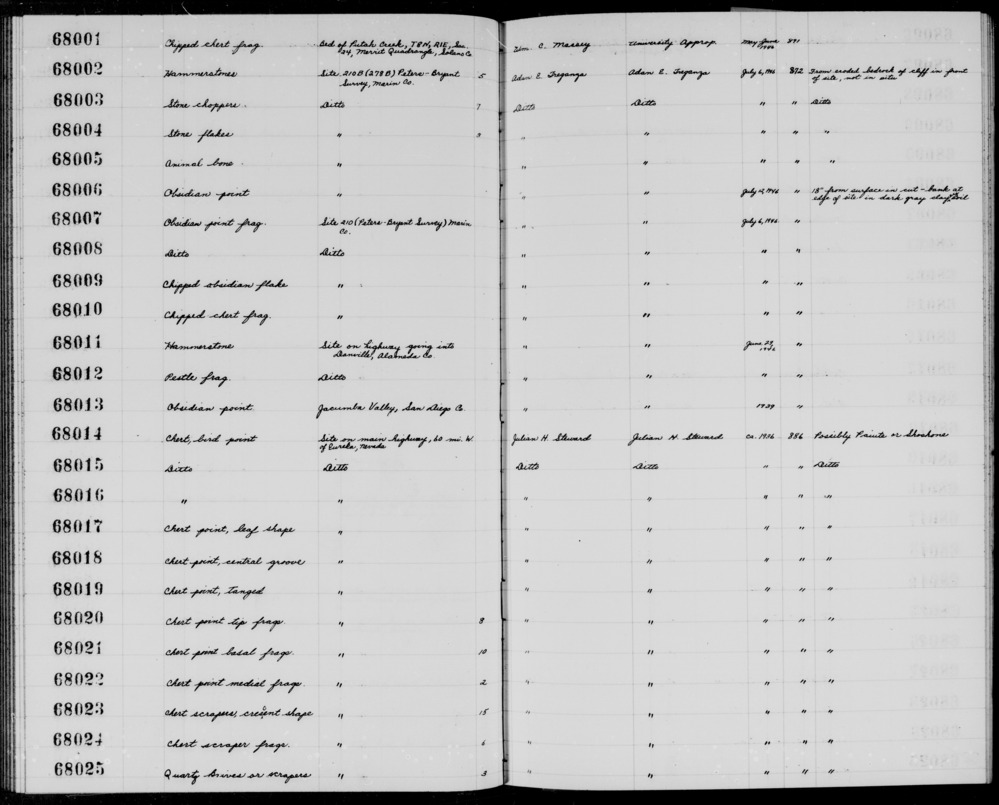 68001 Chipped chert frag. Bed of Putah Creek, T8N, R1E, Sec. 24, Merritt Quadrangle, Solano Co. Wm. C. Massey University Approp. May-June 1946 891
68002 Hammerstones Site 210B (278B) Peters-Bryent Survey, Marin Co. 5 Adan E. Treganza Adan E. Treganza July 6, 1946 892 From eroded bedrock of cliff in front of site, not in situ
68003 Stone choppers. Ditto 7 Ditto Ditto " " Ditto
68004 Stone flakes " 3 " " " " "
68005 Animal bone " " " " " "
68006 Obsidian point " " " July 12, 1946 " 18" from surface in cut-bank at edge of site in dark gray clay soil
68007 Obsidian point frag. Site 210 (Peters-Bryent Survey) Marin Co. " " July 6, 1946 "
68008 Ditto Ditto " " " "
68009 Chipped obsidian flake " " " " "
68010 Chipped chert frag. " " " " "
68011 Hammerstone Site on highway going into Danville, Alameda Co. " " June 29, 1946 "
68012 Pestle frag. Ditto " " " "
68013 Obsidian point Jacumba Valley, San Diego Co. " " 1939 "
68014 Chert, bird point Site on main highway, 60 mi. W. of Eureka, Nevada Julian H. Steward Julian H. Steward ca. 1936 886 Possibly Paiute or Shoshone
68015 Ditto Ditto Ditto Ditto " " Ditto
68016 " " " " " " "
68017 Chert point, leaf shape " " " " " "
68018 Chert point, central groove " " " " " "
68019 Chert point, tanged " " " " " "
68020 Chert point tip frags. " 8 " " " " "
68021 Chert point basal frags. " 10 " " " " "
68022 Chert point medial frags. " 2 " " " " "
68023 Chert scrapers, cresent shape " 15 " " " " "
68024 Chert scraper frags. " 6 " " " " "
68025 Quartz knives or scrapers " 3 " " " " "